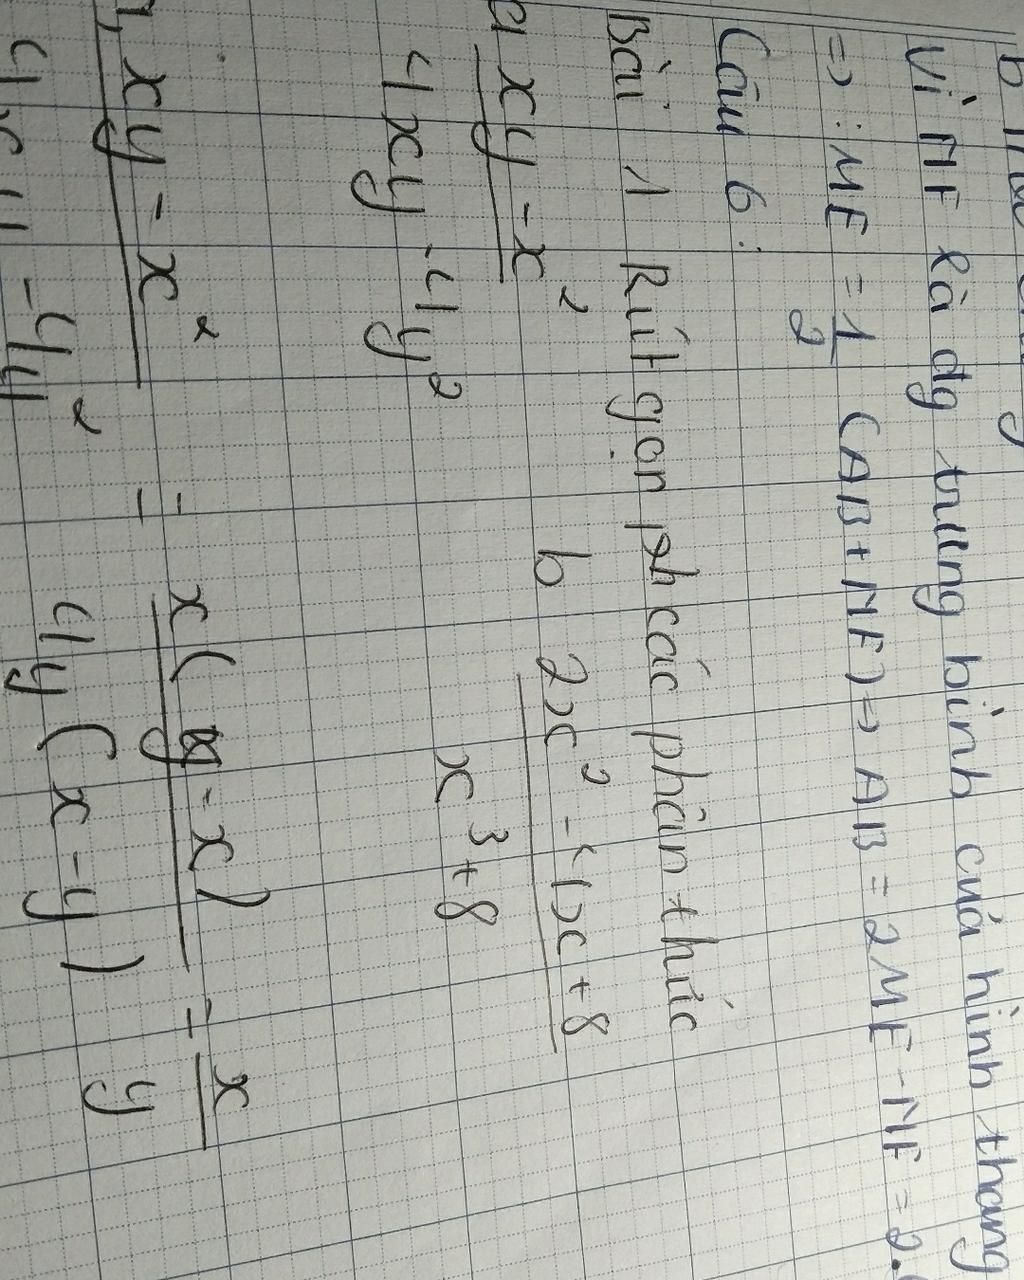 Vì MF là đg trung bình của hình thang
=> ME = 1/2 (AB + MF) => AB = 2ME - MF = 2.
Câu 6:
Bài 1 Rút gọn ph các phân thức
a xy - x² / 4xy - 4y² b 2x² - 4x + 8 / x³ + 8
xy - x² / 4xy - 4y² = x(y - x) / 4y(x - y) = x / y